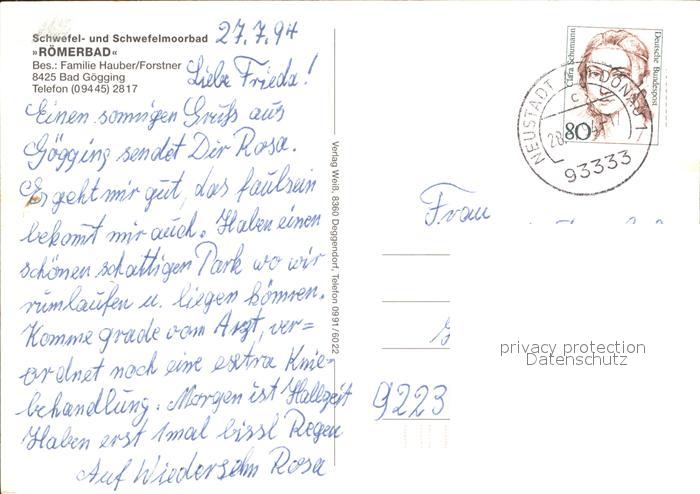 Schwefel- und Schwefelmoorbad
»RÖMERBAD«
Bes.: Familie Hauber/Forstner
8425 Bad Gögging
Telefon (0 94 45) 28 17
27.7.94
Liebe Frieda!
Einen sonnigen Gruß aus
Gögging sendet Dir Rosa.
Es geht mir gut, das faulsein
bekomt mir auch. Haben einen
schönen schattigen Park wo wir
rumlaufen u. liegen können.
Komme grade vom Arzt, ver=
ordnet noch eine esxtra Knie-
behandlung. Morgen ist Halbzeit
Haben erst 1mal bissl Regen
Auf Wiedersehn Rosa
Verlag Weiß, 8360 Deggendorf, Telefon 0991/6022
Clara Schumann
Deutsche Bundespost
80
NEUSTADT A D DONAU 1
93333
Frau
9223
privacy protection
Datenschutz